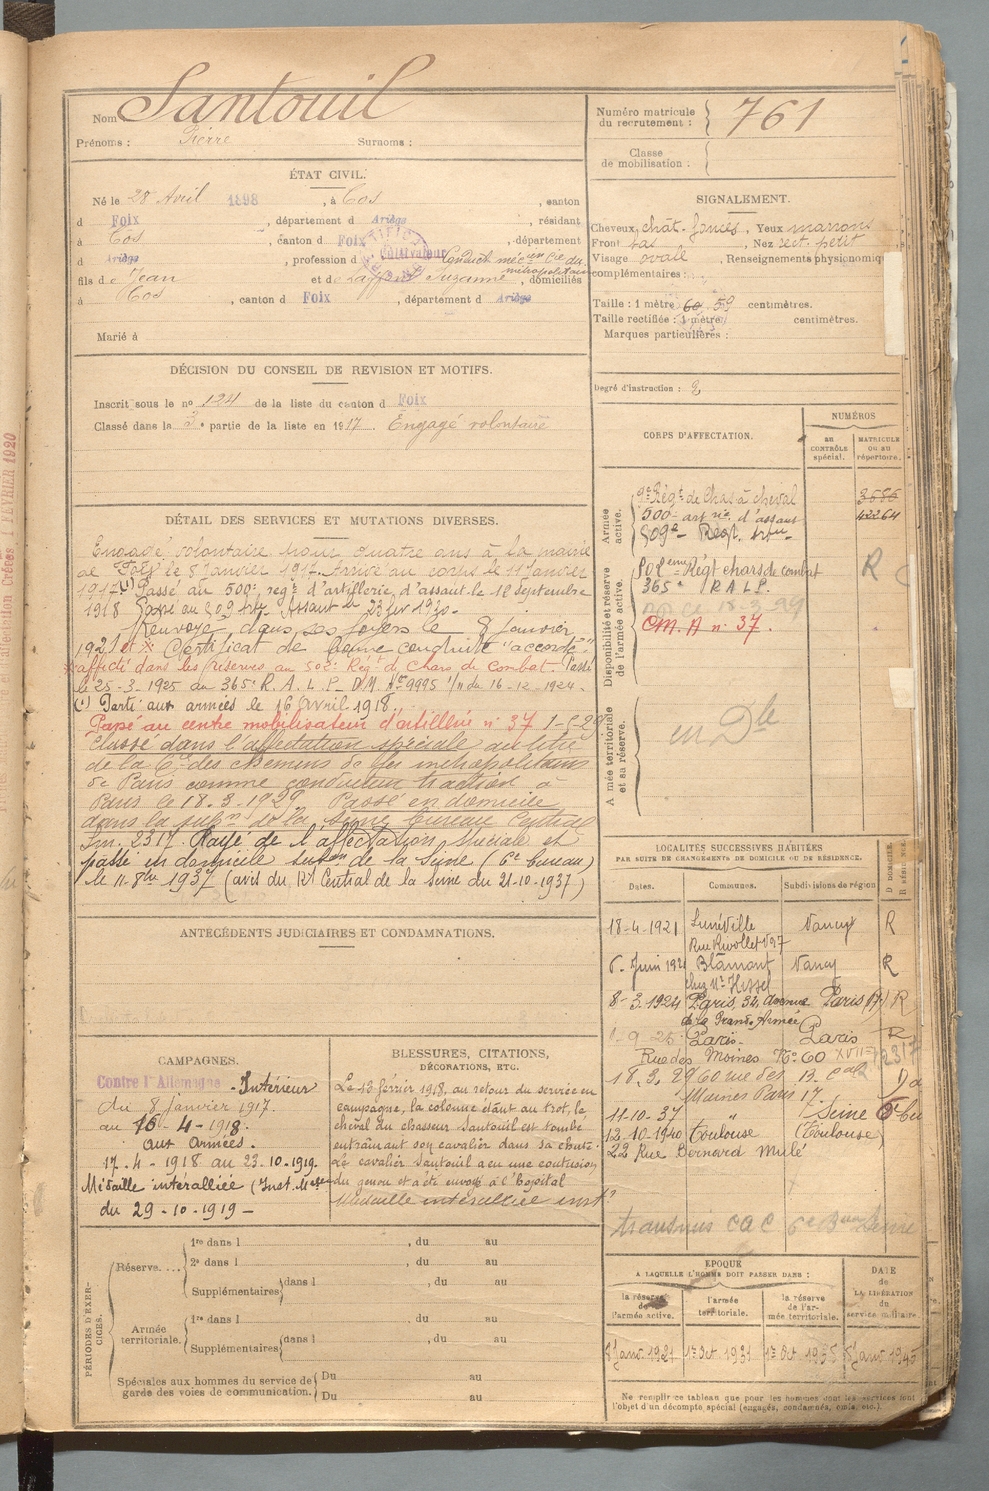 Nom Santouil
Prénoms : Pierre Surnoms :
Numéro matricule du recrutement : 761
Classe de mobilisation :
ÉTAT CIVIL.
Né le 28 Avril 1898, à Cos, canton
d Foix, département d Ariège, résidant
à Cos, canton d Foix, département
d Ariège, profession de Cultivateur Conduct. méc.en Cie du métropolitain
fils de Jean et de Suzanne, domiciliés
à Cos, canton d Foix, département d Ariège
Marié à
SIGNALEMENT.
Cheveux chat. foncés, Yeux marrons
Front bas, Nez rect. petit
Visage ovale, Renseignements physionomiq
complémentaires :
Taille : 1 mètre 60 59 centimètres.
Taille rectifiée : 1 mètre centimètres.
Marques particulières :
Degré d'instruction : 2
DÉCISION DU CONSEIL DE REVISION ET MOTIFS.
Inscrit sous le no 124 de la liste du canton d Foix
Classé dans la 3e partie de la liste en 1917. Engagé volontaire
DÉTAIL DES SERVICES ET MUTATIONS DIVERSES.
Engagé volontaire pour quatre ans à la mairie
de Foix le 8 Janvier 1917. Arrivé au corps le 11 Janvier
1917 (1) Passé au 500e régt d'artillerie d'assaut le 12 Septembre
1918 Passé au 509 Artie Assaut le 23 fev 1920.
Renvoyé dans ses foyers le 8 Janvier
1921 et X Certificat de bonne conduite "accordé"
X affecté dans les réserves au 502e Régt de Chars de Combat. Passé
le 25-3-1925 au 365e R.A.L.P. D.M. No 9995 1/11 du 16-12-1924.
(1) Parti aux armées le 16 avril 1918.
Passé au centre mobilisateur d'artillerie no 37
Classé dans l'affectation spéciale au titre
de la Cie des chemins de fer métropolitains
de Paris comme conducteur traction à
Paris le 18.3.1929. Passé en domicile
dans la subon de la Seine bureau Central
2317. Rayé de l'affectation spéciale et
passé en domicile subon de la Seine (6e bureau)
le 11-8bre 1937 (avis du Rt Central de la Seine du 21-10-1937)
CORPS D'AFFECTATION.
NUMÉROS
au CONTRÔLE spécial.
MATRICULE OU AU répertoire.
Armée active.
9e Régt de Chas. à cheval 3686
500e artrie d'assaut 42264
509e Régt
Disponibilité et réserve de l'armée active.
502ème Régt chars de combat R
365e R.A.L.P.
C.M.A no 37.
Armée territoriale et sa réserve.
en Dle
LOCALITÉS SUCCESSIVES HABITÉES
PAR SUITE DE CHANGEMENTS DE DOMICILE OU DE RÉSIDENCE.
Dates. Communes. Subdivisions de région
18-4-1921 Lunéville Nancy R
6 Juin 1921 Blâmont Nancy R
chez Mr Hessel
8-3-1924 Paris, 32, Avenue Paris (17) R
de la Grande Armée
-9-25 Paris. Paris R
Rue des Moines No 60 XVII
18.3.29 60 rue des
Moines Paris 17.
11-10-37 " Seine 6e Bu
12-10-1940 Toulouse (Toulouse)
22 Rue Bernard Mulé
transmis CAC 6e Beau Seine
ANTÉCÉDENTS JUDICIAIRES ET CONDAMNATIONS.
CAMPAGNES.
Contre l'Allemagne - Intérieur
du 8 janvier 1917.
au 16-4-1918.
aux armées.
17-4-1918 au 23-10-1919.
Médaille interalliée (Inst. Melle
du 29-10-1919 -
BLESSURES, CITATIONS,
DÉCORATIONS, ETC.
Le 13 février 1918, au retour du service en
campagne, la colonne étant au trot, le
cheval du chasseur Santouil est tombé
entraînant son cavalier dans sa chute.
Le cavalier Santouil a eu une contusion
du genou et a été envoyé à l'hôpital
Médaille interalliée inst
PÉRIODES D'EXERCICES.
Réserve....
1re dans l , du au
2e dans l , du au
Supplémentaires dans l , du au
Armée territoriale.
1re dans l , du au
Supplémentaires dans l , du au
Spéciales aux hommes du service de garde des voies de communication.
Du au
Du au
EPOQUE
A LAQUELLE L'HOMME DOIT PASSER DANS :
la réserve de l'armée active.
l'armée territoriale.
la réserve de l'armée territoriale.
DATE de LA LIBÉRATION du service militaire.
8 Janv. 1921 1er Oct 1931 1er Oct 1938 8 Janv 1945
Ne remplir ce tableau que pour les hommes dont les services font
l'objet d'un décompte spécial (engagés, condamnés, omis, etc.).
1 FEVRIER 1920